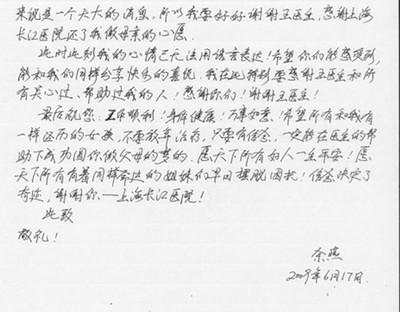 来说是一个天大的消息,所以我要好好谢谢王医生,感谢上海
长江医院还了我做母亲的心愿。
此时此刻我的心情已无法用语言表达!希望你们能感受到,
能和我们同样分享快乐的喜悦。我在此特别要感谢王医生和所
有关心过、帮助过我的人!感谢你们!谢谢王医生!
最后祝您:工作顺利!身体健康!万事如意!希望所有和我有
一样经历的女孩,不要放弃治疗,只要有信念,一定能在医生的帮
助下成为圆你做父母的梦的。愿天下所有好人一生平安!愿
天下所有有着同样命运的姐妹们早日摆脱困扰!信念决定了
命运,谢谢你——上海长江医院!
此致
敬礼!
余燕
2009年6月17日.